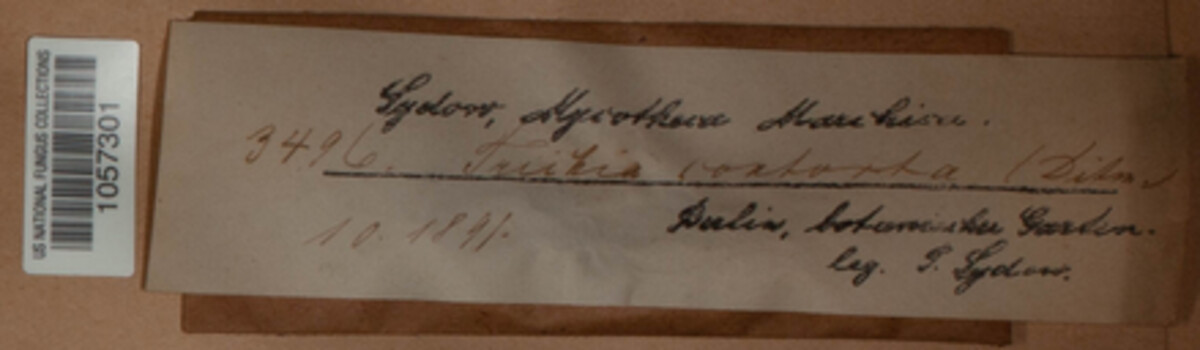 US NATIONAL FUNGUS COLLECTIONS
1057301
Sydow, Mycotheca Marchica.
3496. Trichia contorta (Ditm.
Berlin, botanischer Garten.
10. 1891.
leg. P. Sydow.